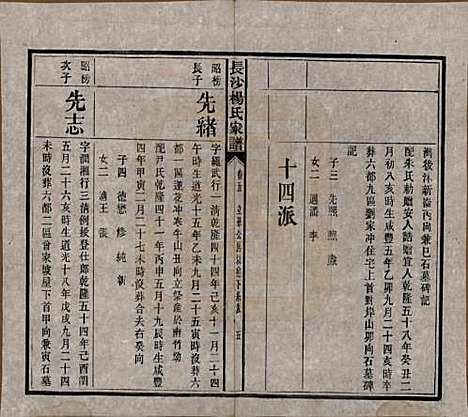 灣後冲新崙丙向兼巳石墓碑記
配朱氏勅贈安人誥贈宜人乾隆五十八年癸丑二
月初八日亥時生咸豐五年乙卯九月二十四亥時卒
葬六都九區劉家冲住宅上首對岸山卯向石墓碑
記
子三 先熙 照 煦
女二 適潘 李
十四派
長沙楊氏家譜
卷五
五
昭榜
長子
先緒
字繩武行一清乾隆四十四年己亥十一月二十四
午時生道光十五年乙未九月二十五寅時沒葬六
都一區蓮花冲寒牛山丑向立
配尹氏乾隆四十一年丙申五月十九辰時生咸豐
四年甲寅二月二十七未時沒葬合夫右癸向
子四 德懋 修 純
女二 適王 張
昭榜
次子
先志
字潤湘行三清例授登仕郎乾隆五十四年己酉閏
五月二十六亥時生道光十八年戊戌九月二十四
未時沒葬六都二區曾家坡屋下首甲向兼寅石墓